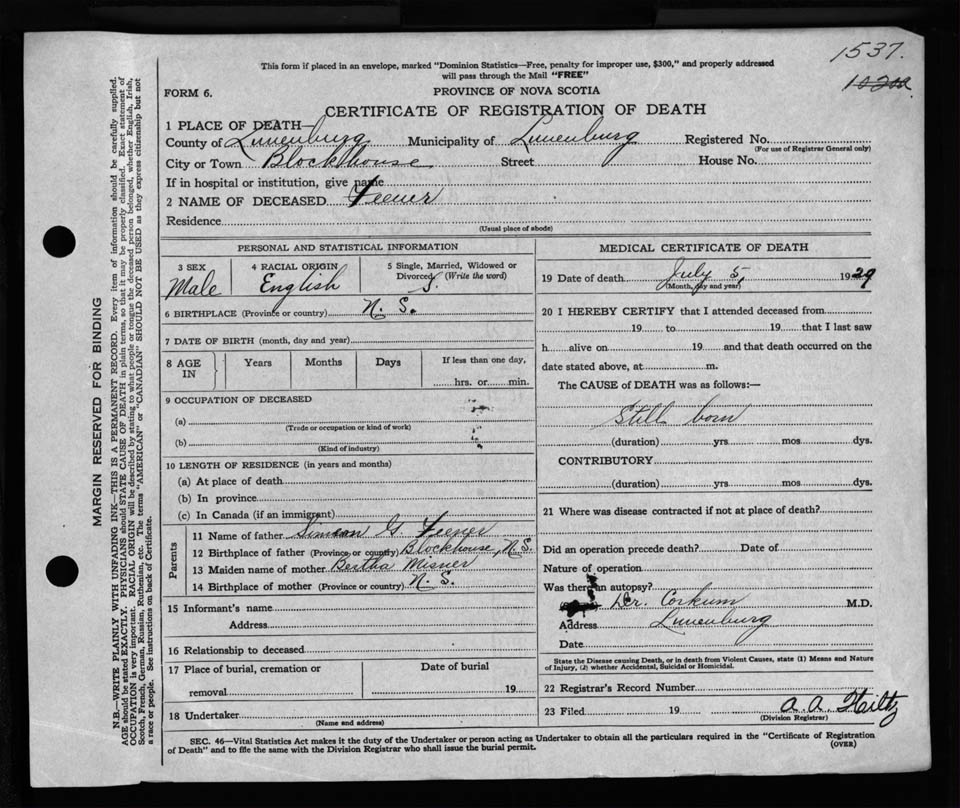 1537.
This form if placed in an envelope, marked "Dominion Statistics—Free, penalty for improper use, $300," and properly addressed
will pass through the Mail "FREE"
FORM 6.
PROVINCE OF NOVA SCOTIA
CERTIFICATE OF REGISTRATION OF DEATH
1 PLACE OF DEATH—
County of Lunenburg Municipality of Lunenburg Registered No.
(For use of Registrar General only)
City or Town Blockhouse Street House No.
If in hospital or institution, give name
2 NAME OF DECEASED Feener
Residence
(Usual place of abode)
PERSONAL AND STATISTICAL INFORMATION
3 SEX 4 RACIAL ORIGIN 5 Single, Married, Widowed or
Divorced (Write the word)
Male English S.
6 BIRTHPLACE (Province or country) N. S.
7 DATE OF BIRTH (month, day and year)
8 AGE IN Years Months Days If less than one day,
hrs. or min.
9 OCCUPATION OF DECEASED
(a)
(Trade or occupation or kind of work)
(b)
(Kind of industry)
10 LENGTH OF RESIDENCE (in years and months)
(a) At place of death
(b) In province
(c) In Canada (if an immigrant)
Parents
11 Name of father Simeon G Feener
12 Birthplace of father (Province or country) Blockhouse, N. S.
13 Maiden name of mother Bertha Misner
14 Birthplace of mother (Province or country) N. S.
15 Informant's name
Address
16 Relationship to deceased
17 Place of burial, cremation or Date of burial
removal 19
18 Undertaker
(Name and address)
MEDICAL CERTIFICATE OF DEATH
19 Date of death July 5, 1929
(Month, day and year)
20 I HEREBY CERTIFY that I attended deceased from
19 to 19 that I last saw
h alive on 19 and that death occurred on the
date stated above, at m.
The CAUSE of DEATH was as follows:—
Still born
(duration) yrs mos dys.
CONTRIBUTORY
(duration) yrs. mos dys.
21 Where was disease contracted if not at place of death?
Did an operation precede death? Date of
Nature of operation
Was there an autopsy?
Dr. Corkum M.D.
Address Lunenburg
Date
State the Disease causing Death, or in death from Violent Causes, state (1) Means and Nature
of Injury, (2) whether Accidental, Suicidal or Homicidal.
22 Registrar's Record Number
23 Filed 19 A. A. Hiltz
(Division Registrar)
SEC. 46—Vital Statistics Act makes it the duty of the Undertaker or person acting as Undertaker to obtain all the particulars required in the "Certificate of Registration
of Death" and to file the same with the Division Registrar who shall issue the burial permit.
(OVER)
MARGIN RESERVED FOR BINDING
N.B.—WRITE PLAINLY WITH UNFADING INK—THIS IS A PERMANENT RECORD. Every item of information should be carefully supplied.
AGE should be stated EXACTLY. PHYSICIANS should STATE CAUSE OF DEATH in plain terms, so that it may be properly classified. Exact statement of
OCCUPATION is very important. RACIAL ORIGIN will be described by stating to what people or tongue the deceased person belonged, whether English, Irish,
Scotch, French, German, Russian, Ruthenian, etc. The terms "AMERICAN" or "CANADIAN" SHOULD NOT BE USED as they express citizenship but not
a race or people. See instructions on back of Certificate.